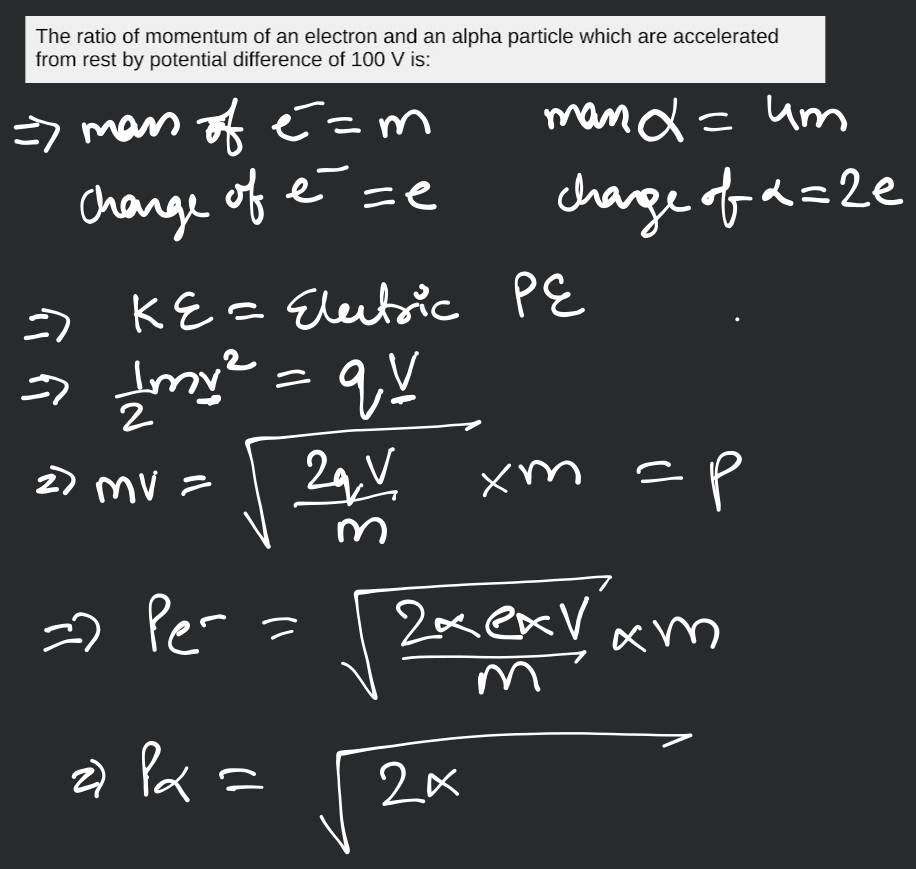 The ratio of momentum of an electron and an alpha particle which are accelerated
from rest by potential difference of 100 V is:
=> mass of e⁻ = m mass α = 4m
charge of e⁻ = e charge of α = 2e
=> KE = Electric PE
=> 1/2 mv² = qV
=> mv = √(2qV/m) × m = p
=> Pe⁻ = √(2×e×V/m) × m
=> Pα = √(2×